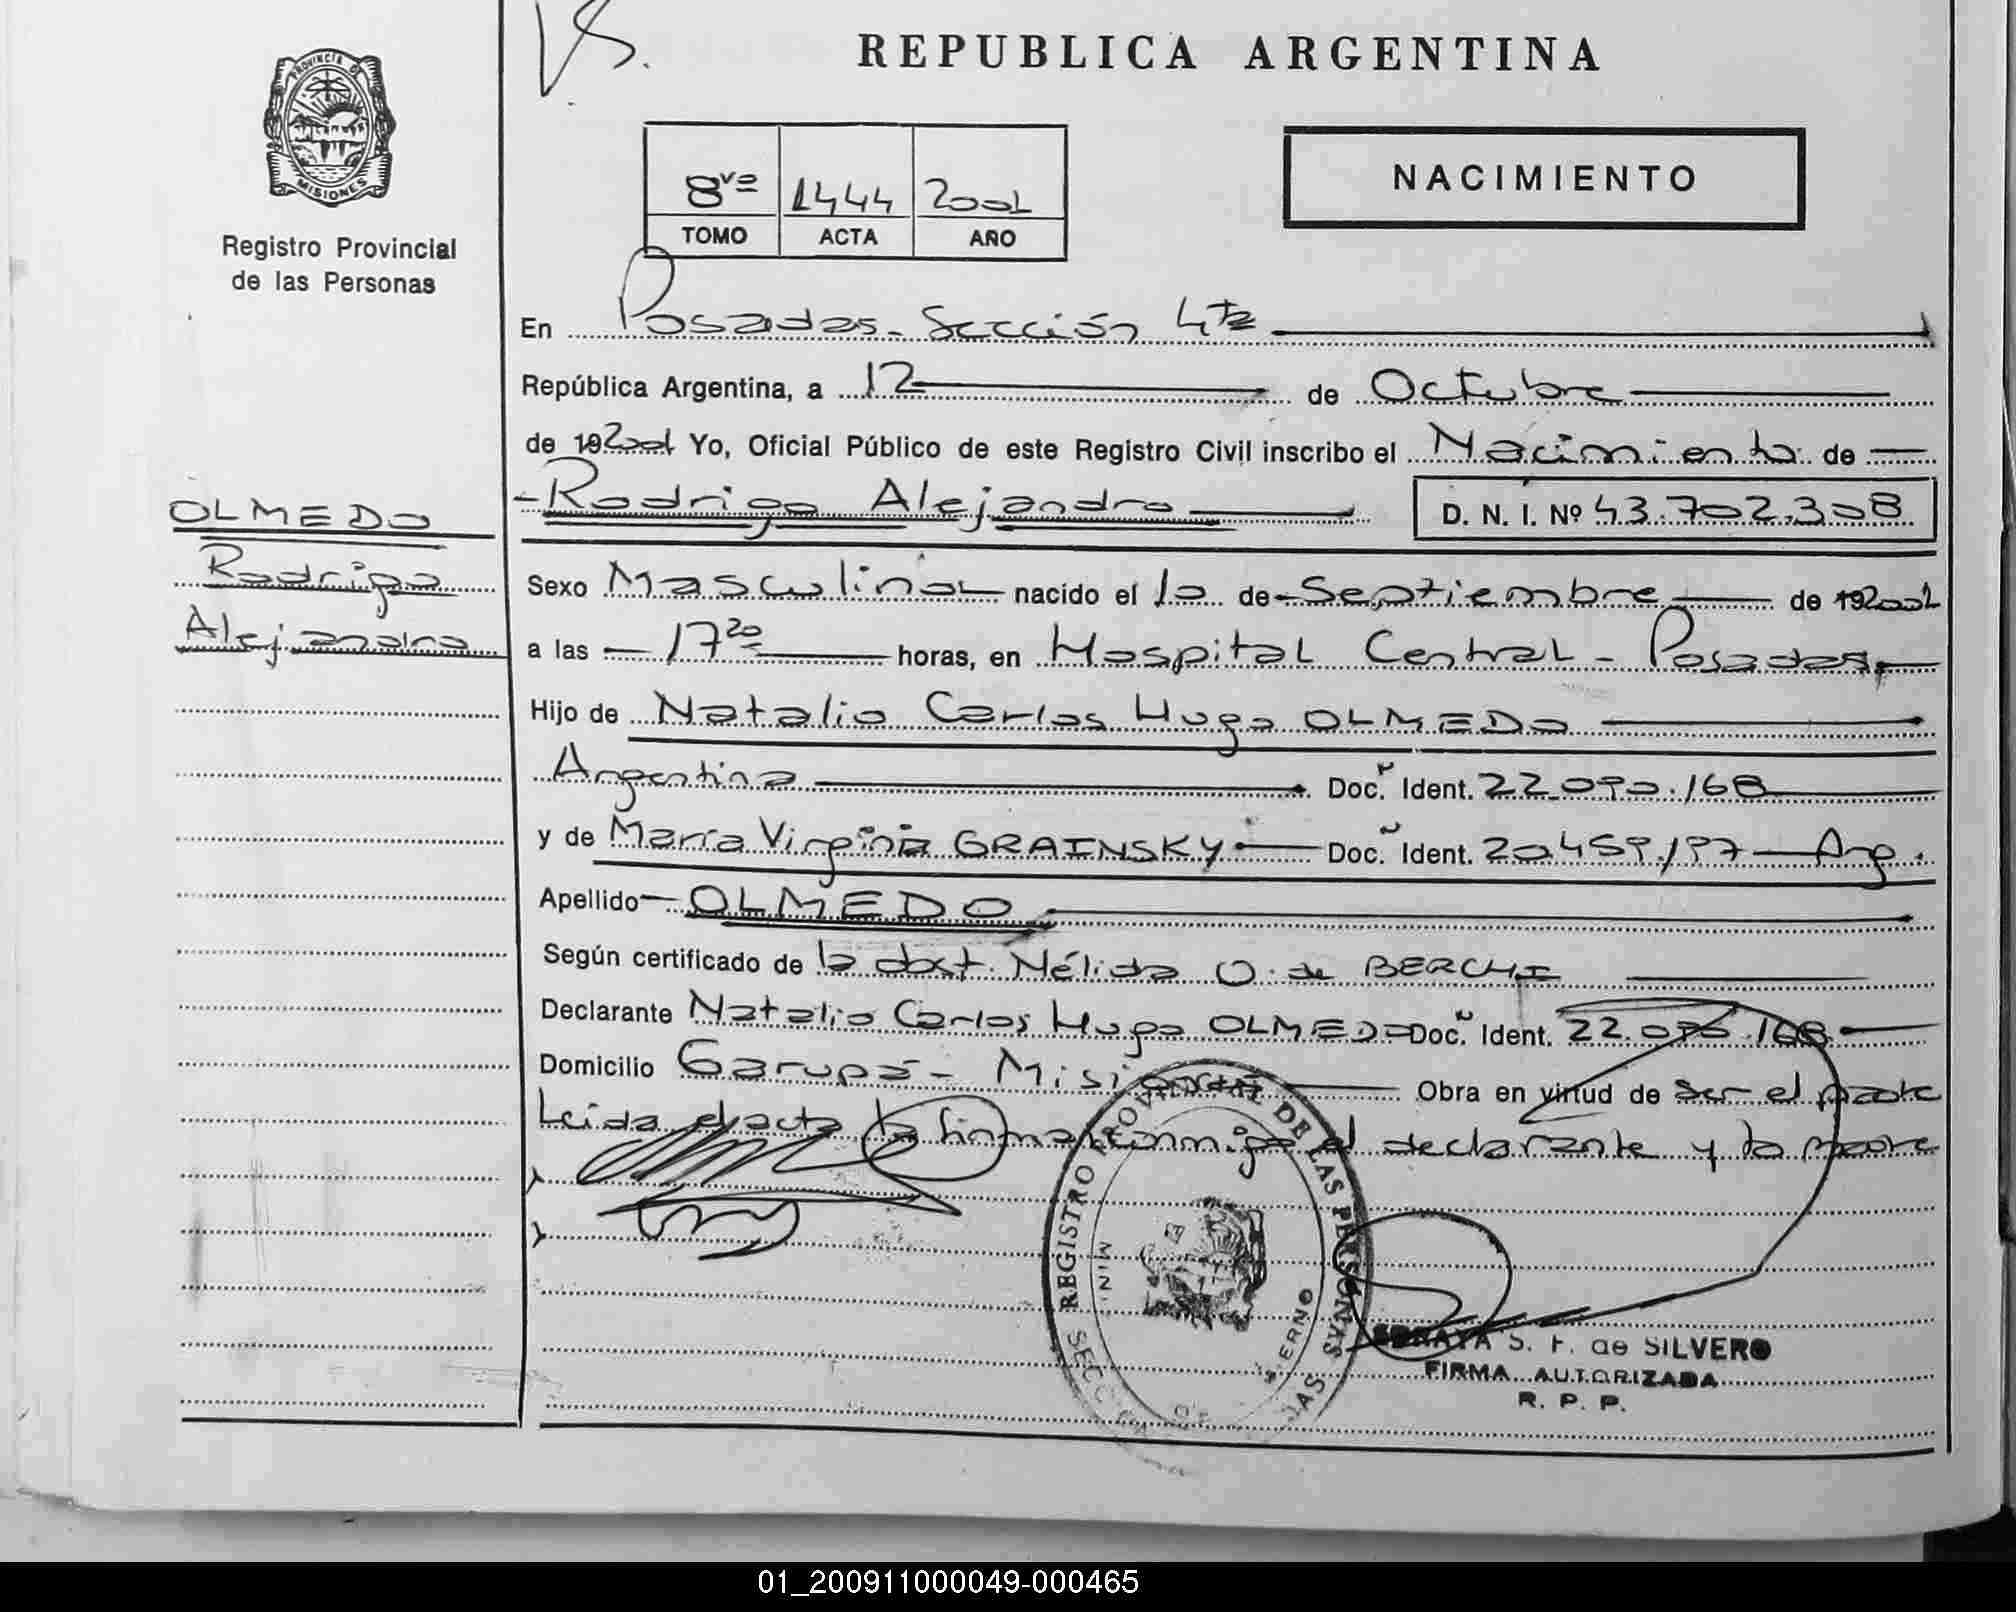 VS.
REPUBLICA ARGENTINA
PROVINCIA DE
MISIONES
Registro Provincial
de las Personas
8vo 1444 2001
TOMO ACTA AÑO
NACIMIENTO
En Posadas - Sección 4ta
República Argentina, a 12 de Octubre
de 192001 Yo, Oficial Público de este Registro Civil inscribo el Nacimiento de
Rodrigo Alejandro D. N. I. Nº 43.702.308
OLMEDO
Rodrigo
Alejandro
Sexo Masculino nacido el 10 de Septiembre de 192001
a las 17 20 horas, en Hospital Central - Posadas
Hijo de Natalio Carlos Hugo OLMEDO
Argentina Doc. Ident. 22.090.168
y de María Virginia GRAINSKY Doc. Ident. 20.459.197 - Arg.
Apellido OLMEDO
Según certificado de la obst. Nélida O. de BERCHI
Declarante Natalio Carlos Hugo OLMEDO Doc. Ident. 22.090.168
Domicilio Garupá - Misiones Obra en virtud de ser el padre
Leida el acta la firman conmigo el declarante y la madre
REGISTRO PROVINCIAL DE LAS PERSONAS
SORAYA S. F. de SILVERO
FIRMA AUTORIZADA
R. P. P.
01_200911000049-000465